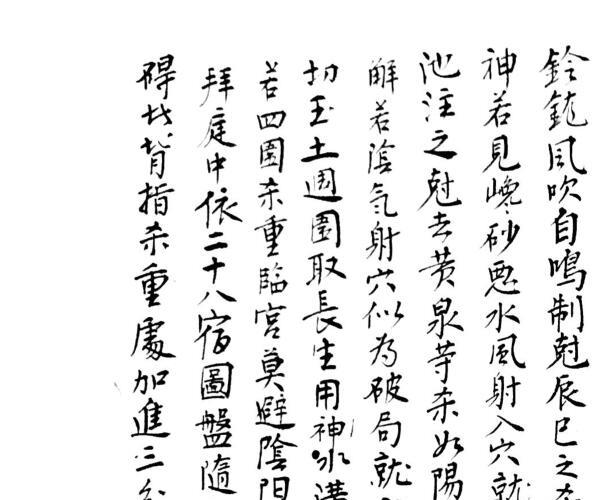 鈴鈍風吹自鳴制尅辰巳之
神若見巉砂惡水風射入穴就
池注之尅去黄泉等杀如陽
解若陰氣射穴似為破局就
切玉土週圍取長生用神水
若四圍杀重臨宮莫避陰陽
拜庭中依二十八宿圖盤隨
碍比背指杀重處加進三